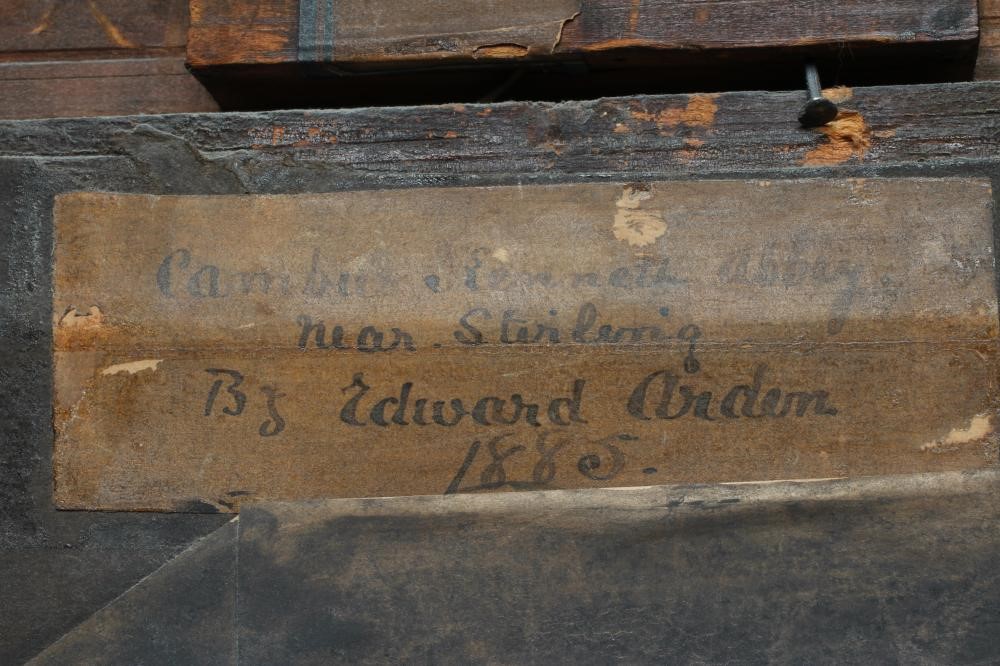 Cambus Kenneth Abbey.
near. Sterling
By Edward Arden
1885.